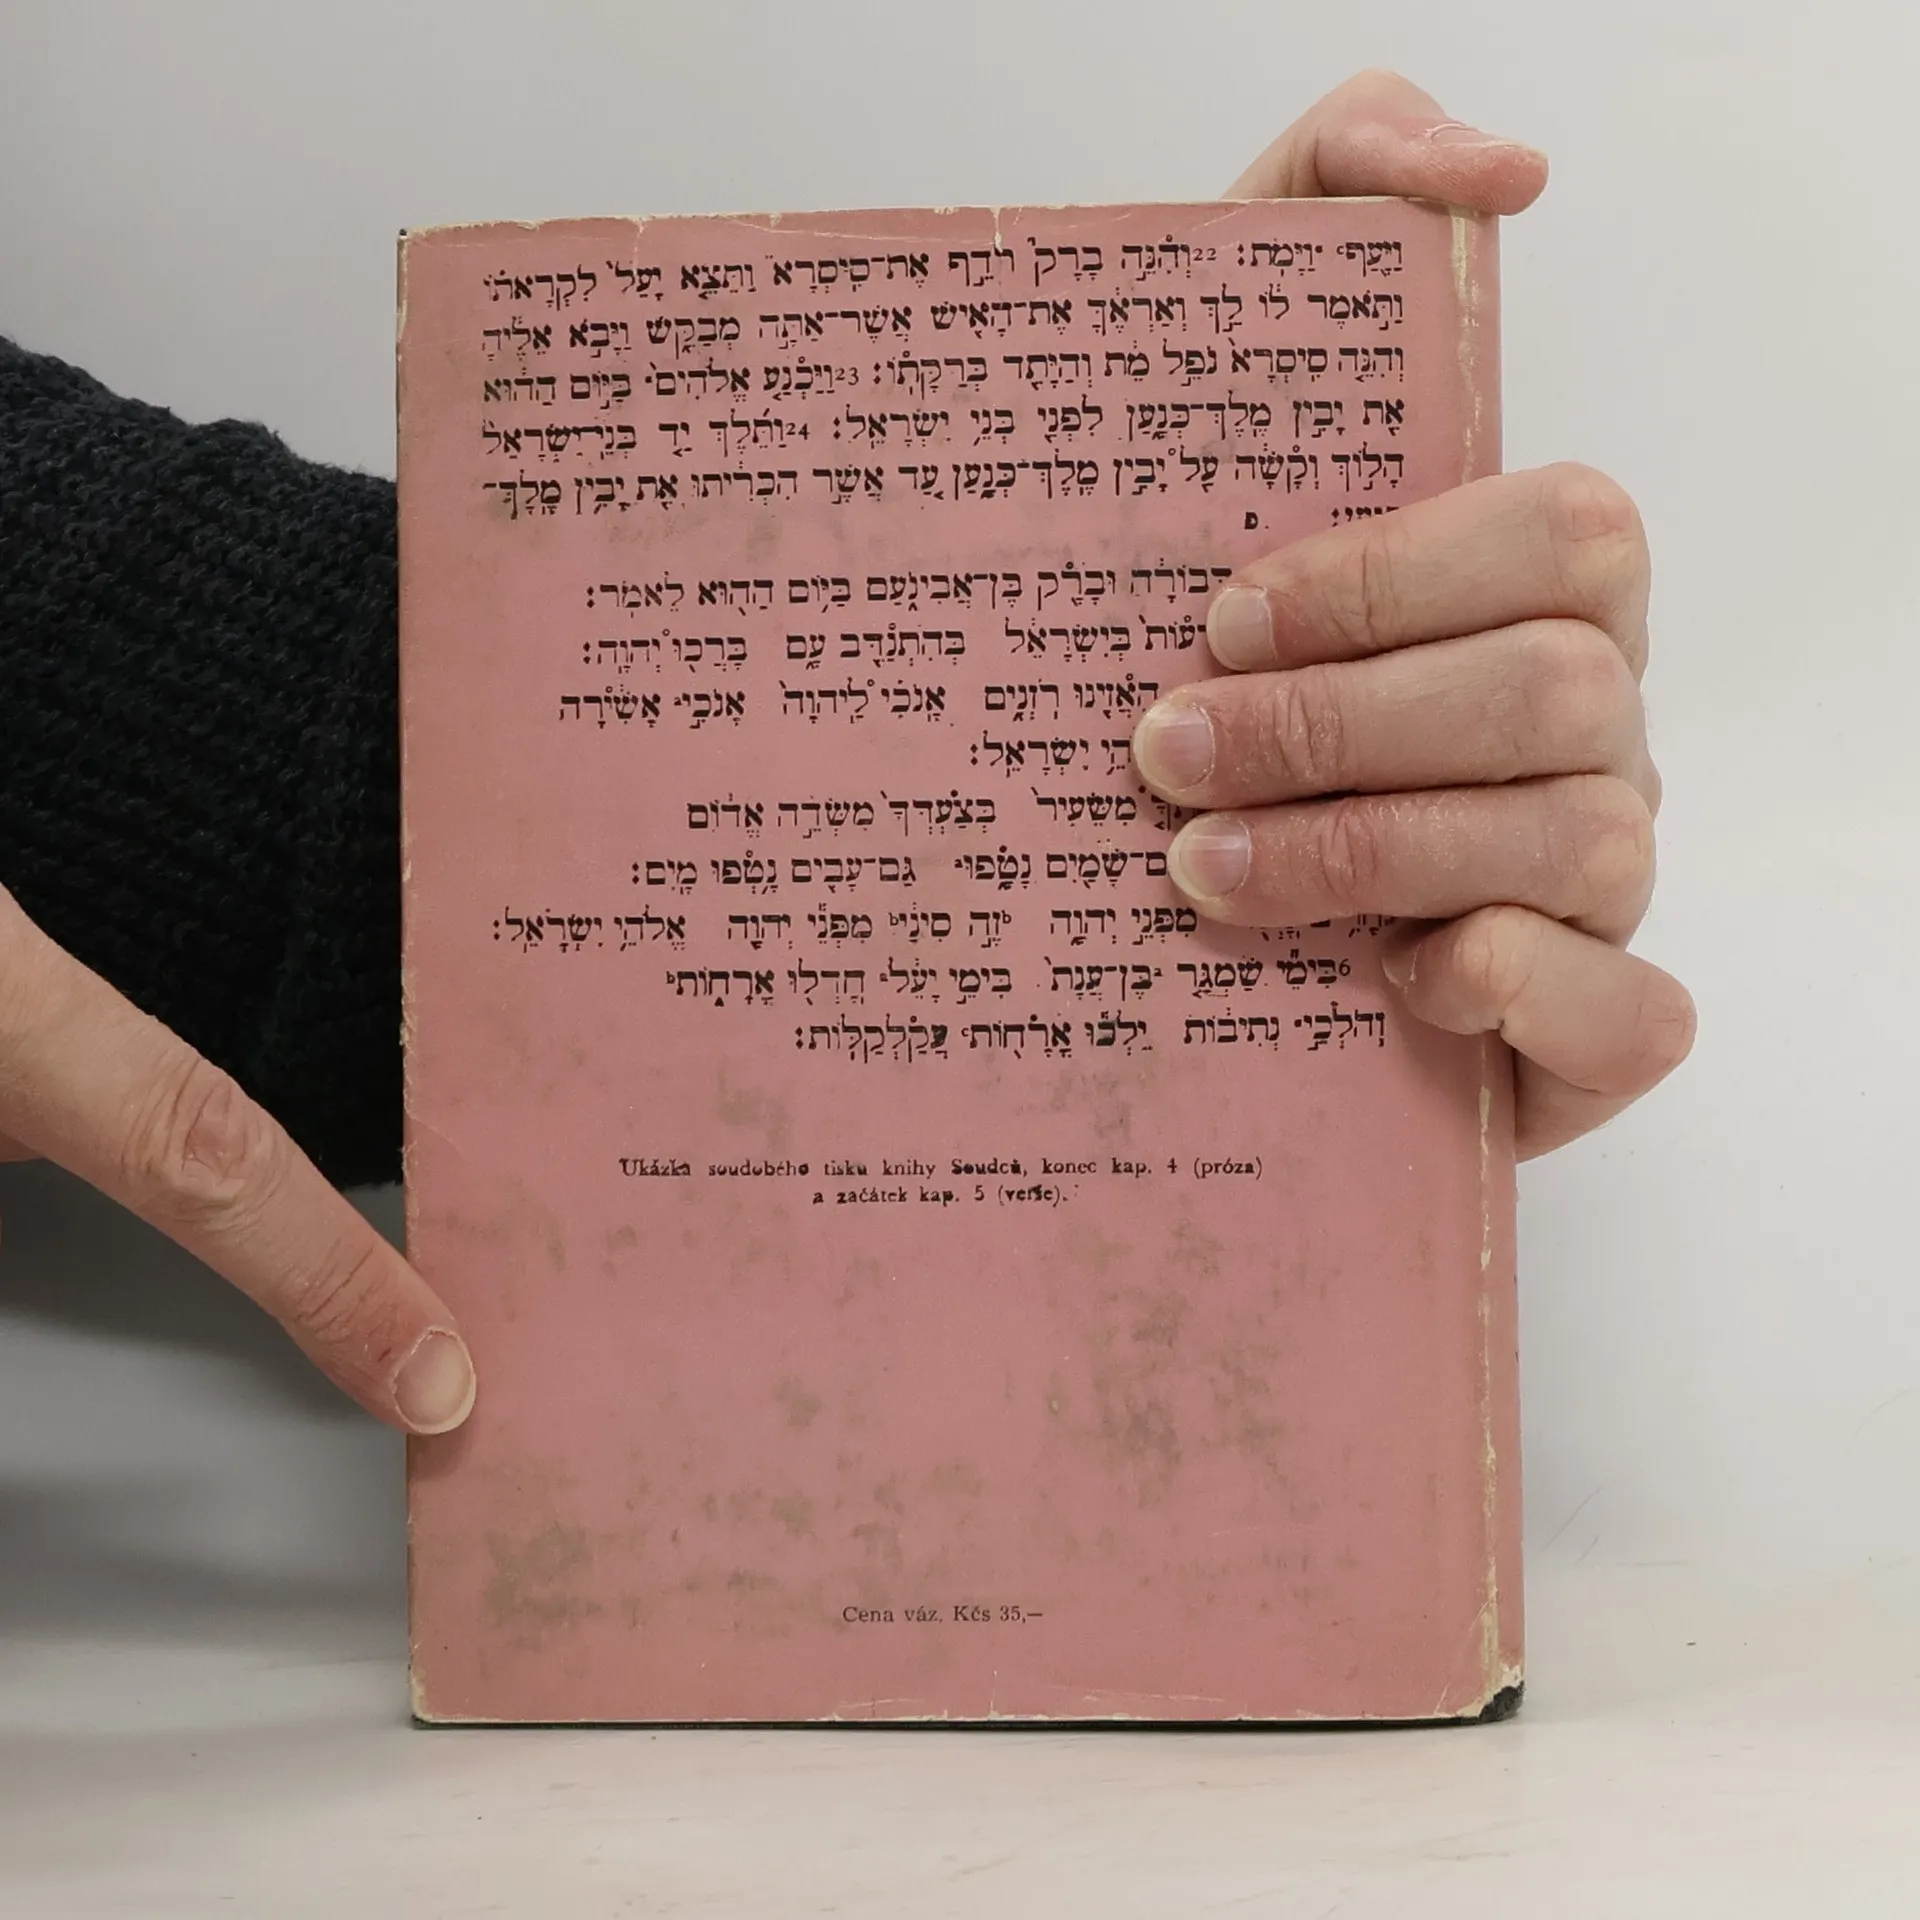 וַיָּ֖עַף ᶜ וַיָּמֹֽת׃ 22 וְהִנֵּ֣ה בָרָק֮ רֹדֵ֣ף אֶת־סִֽיסְרָא֒ וַתֵּצֵ֤א יָעֵל֙ לִקְרָאת֔וֹ
וַתֹּ֣אמֶר ל֔וֹ לֵ֣ךְ וְאַרְאֶ֔ךָּ אֶת־הָאִ֖ישׁ אֲשֶׁר־אַתָּ֣ה מְבַקֵּ֑שׁ וַיָּבֹ֣א אֵלֶ֔יהָ
וְהִנֵּ֤ה סִֽיסְרָא֙ נֹפֵ֣ל מֵ֔ת וְהַיָּתֵ֖ד בְּרַקָּתֽוֹ׃ 23 וַיַּכְנַ֤ע אֱלֹהִים֙ בַּיּ֣וֹם הַה֔וּא
אֵ֖ת יָבִ֣ין מֶֽלֶךְ־כְּנָ֑עַן לִפְנֵ֖י בְּנֵ֥י יִשְׂרָאֵֽל׃ 24 וַתֵּ֜לֶךְ יַ֤ד בְּנֵֽי־יִשְׂרָאֵל֙
הָל֣וֹךְ וְקָשָׁ֔ה עַ֖ל יָבִ֣ין מֶֽלֶךְ־כְּנָ֑עַן עַ֚ד אֲשֶׁ֣ר הִכְרִ֔יתוּ אֵ֖ת יָבִ֥ין מֶֽלֶךְ־
פ
דְּבוֹרָ֔ה וּבָרָ֖ק בֶּן־אֲבִינֹ֑עַם בַּיּ֥וֹם הַה֖וּא לֵאמֹֽר׃
בְּיִשְׂרָאֵ֔ל בְּהִתְנַדֵּ֖ב עָ֑ם בָּרֲכ֖וּ יְהוָֽה׃
הַאֲזִ֖ינוּ רֹֽזְנִ֑ים אָֽנֹכִ֗י לַֽיהוָה֙ אָנֹכִ֣י ᵃ אָשִׁ֔ירָה
יִשְׂרָאֵֽל׃
מִשֵּׂעִיר֙ בְּצַעְדְּךָ֙ מִשְּׂדֵ֣ה אֱד֔וֹם
שָׁמַ֖יִם נָטָ֑פוּ ᵃ גַּם־עָבִ֖ים נָ֥טְפוּ מָֽיִם׃
מִפְּנֵ֣י יְהוָ֑ה ᵇ זֶ֣ה סִינַ֔י ᵇ מִפְּנֵ֕י יְהוָ֖ה אֱלֹהֵ֥י יִשְׂרָאֵֽל׃
6 בִּימֵ֞י שַׁמְגַּ֤ר ᵃ בֶּן־עֲנָת֙ בִּימֵ֣י יָעֵ֔ל ᵃ חָדְל֖וּ אֳרָח֑וֹת ᵇ
וְהֹלְכֵ֣י נְתִיב֔וֹת יֵלְכ֕וּ אֳרָח֖וֹת ᶜ עֲקַלְקַלּֽוֹת׃
Ukázka soudobého tisku knihy Soudců, konec kap. 4 (próza)
a začátek kap. 5 (verše).
Cena váz. Kčs 35,—